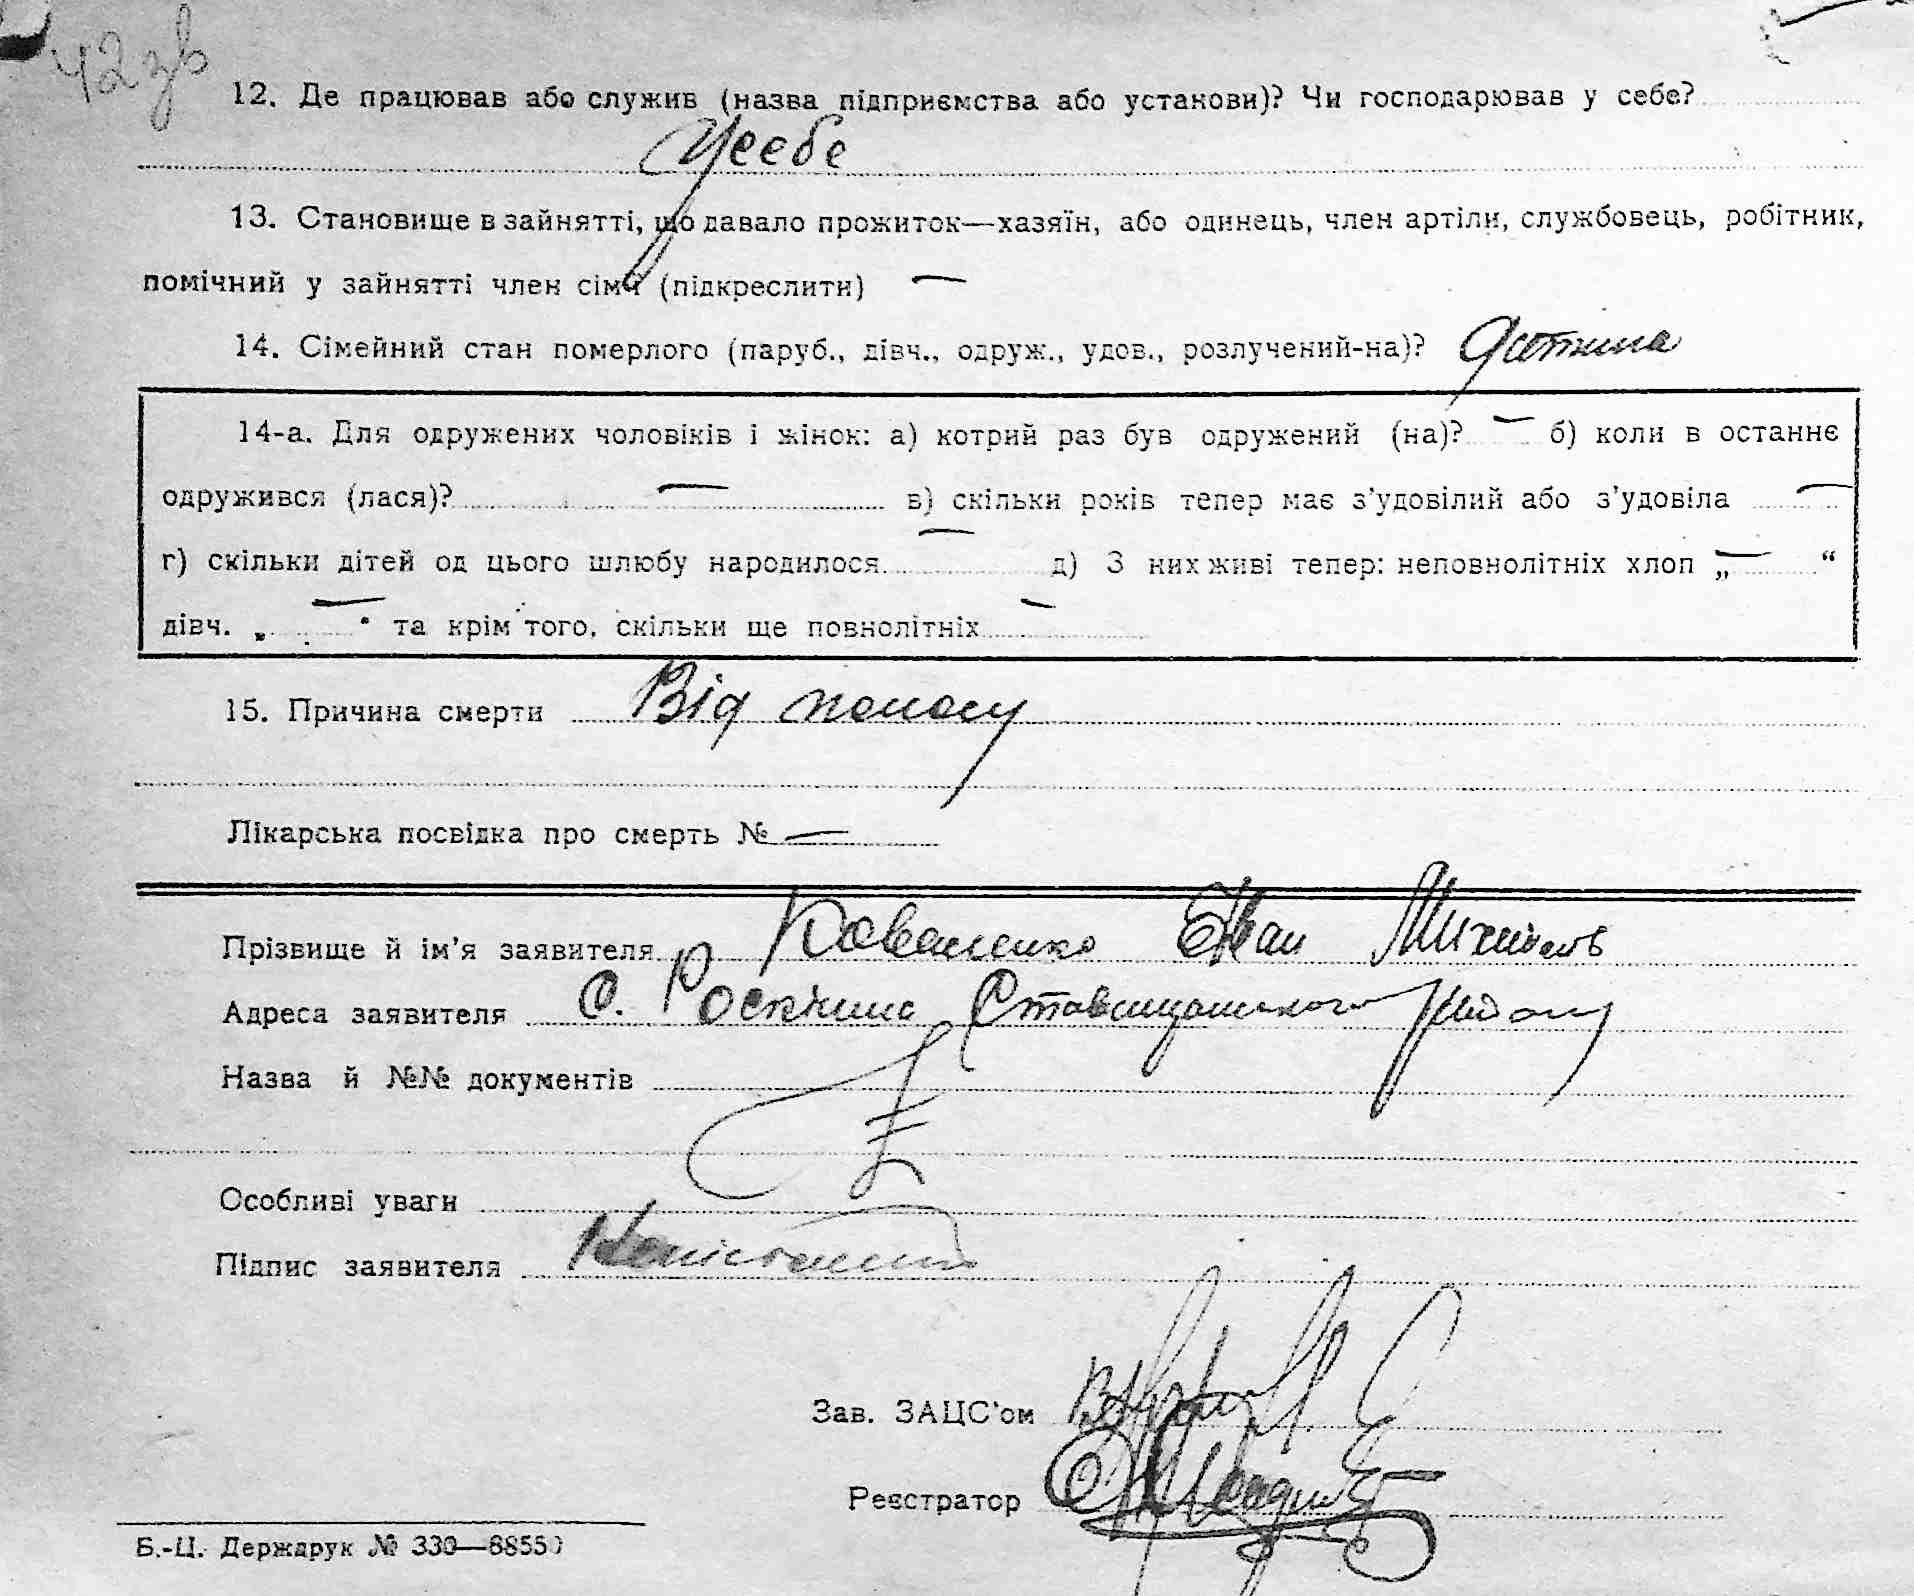 42зв
12. Де працював або служив (назва підприємства або установи)? Чи господарював у себе?
У себе
13. Становище в зайнятті, що давало прожиток—хазяїн, або одинець, член артіли, службовець, робітник,
помічний у зайнятті член сімї (підкреслити) —
14. Сімейний стан померлого (паруб., дівч., одруж., удов., розлучений-на)? Дитина
14-а. Для одружених чоловіків і жінок: а) котрий раз був одружений (на)? — б) коли в останнє
одружився (лася)? — в) скільки років тепер має з’удовілий або з’удовіла —
г) скільки дітей од цього шлюбу народилося — д) З них живі тепер: неповнолітніх хлоп „ — “
дівч. „ — “ та крім того, скільки ще повнолітніх —
15. Причина смерти Від поносу
Лікарська посвідка про смерть № —
Прізвище й ім’я заявителя Коваленко Іван
Адреса заявителя С. Роскішна Ставищанського району
Назва й №№ документів
Особливі уваги
Підпис заявителя
Зав. ЗАЦС’ом
Реєстратор
Б.-Ц. Держдрук № 330—8855